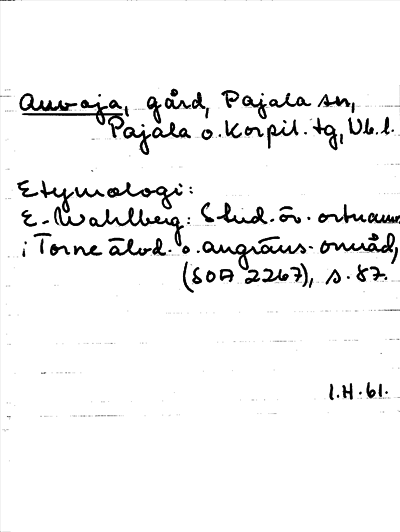 Auvaja, gård, Pajala sn,
Pajala o. Korpil. tg, Nb. l.
Etymologi:
E. Wahlberg: Stud. öv. ortnamn
i Torne älvd. o. angräns. områd,
(SOA 2267), s. 87.
I.H. 61.